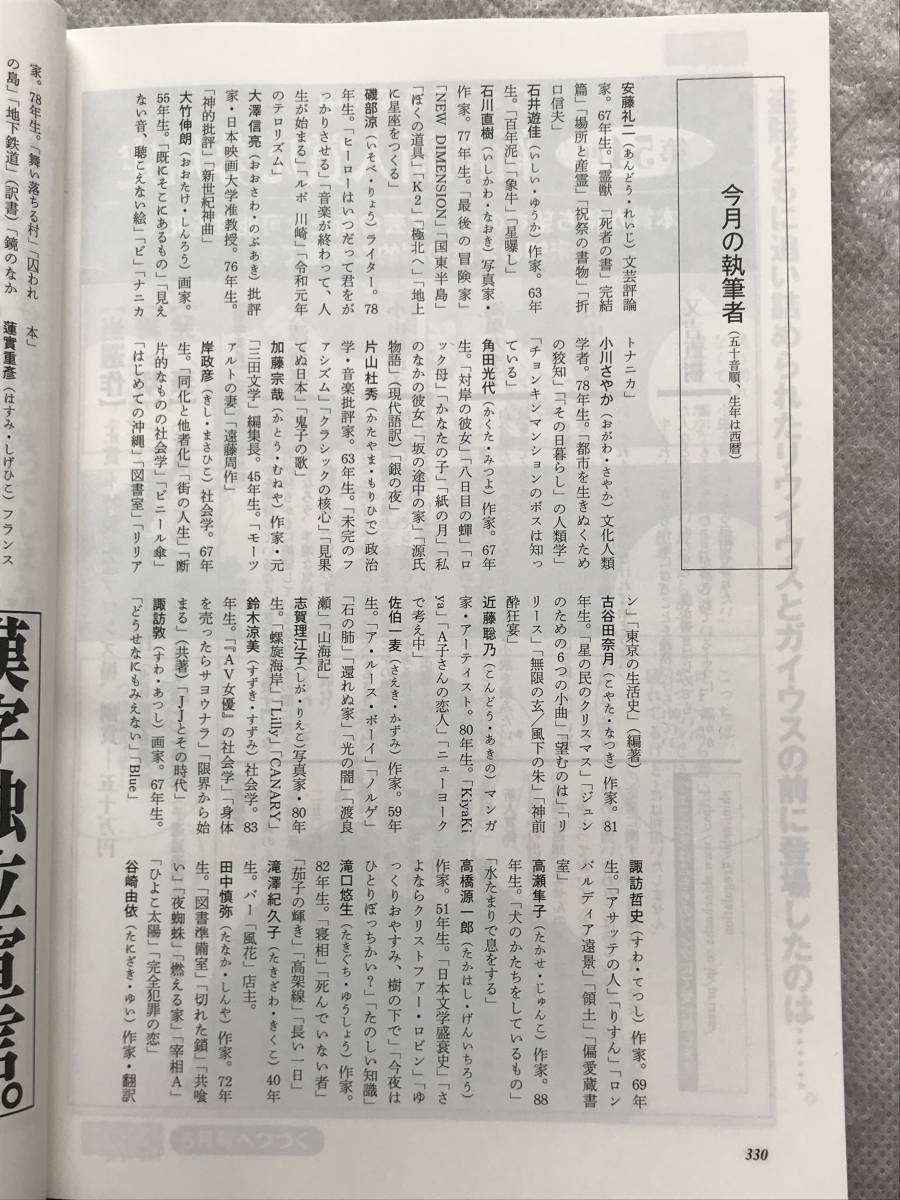 今月の執筆者(五十音順、生年は西暦)
安藤礼二(あんどう・れいじ)文芸評論
家。67年生。「霊獣 「死者の書」完結
篇」「場所と産霊」「祝祭の書物」「折
口信夫」
石井遊佳(いしい・ゆうか)作家。63年
生。「百年泥」「象牛」「星曝し」
石川直樹(いしかわ・なおき)写真家・
作家。77年生。「最後の冒険家」
「NEW DIMENSION」「国東半島」
「ぼくの道具」「K2」「極北へ」「地上
に星座をつくる」
磯部涼(いそべ・りょう)ライター。78
年生。「ヒーローはいつだって君をが
っかりさせる」「音楽が終わって、人
生が始まる」「ルポ 川崎」「令和元年
のテロリズム」
大澤信亮(おおさわ・のぶあき)批評
家・日本映画大学准教授。76年生。
「神的批評」「新世紀神曲」
大竹伸朗(おおたけ・しんろう)画家。
55年生。「既にそこにあるもの」「見え
ない音、聴こえない絵」「ビ」「ナニカ
トナニカ」
小川さやか(おがわ・さやか)文化人類
学者。78年生。「都市を生きぬくため
の狡知」「「その日暮らし」の人類学」
「チョンキンマンションのボスは知っ
ている」
角田光代(かくた・みつよ)作家。67年
生。「対岸の彼女」「八日目の蟬」「ロ
ック母」「かなたの子」「紙の月」「私
のなかの彼女」「坂の途中の家」「源氏
物語」(現代語訳)「銀の夜」
片山杜秀(かたやま・もりひで)政治
学・音楽批評家。63年生。「未完のフ
ァシズム」「クラシックの核心」「見果
てぬ日本」「鬼子の歌」
加藤宗哉(かとう・むねや)作家・元
「三田文学」編集長。45年生。「モーツ
アルトの妻」「遠藤周作」
岸政彦(きし・まさひこ)社会学。67年
生。「同化と他者化」「街の人生」「断
片的なものの社会学」「ビニール傘」
「はじめての沖縄」「図書室」「リリア
ン」「東京の生活史」(編著)
古谷田奈月(こやた・なつき)作家。81
年生。「星の民のクリスマス」「ジュン
のための6つの小曲」「望むのは」「リ
リース」「無限の玄/風下の朱」「神前
酔狂宴」
近藤聡乃(こんどう・あきの)マンガ
家・アーティスト。80年生。「KiyaKi
ya」「A子さんの恋人」「ニューヨーク
で考え中」
佐伯一麦(さえき・かずみ)作家。59年
生。「ア・ルース・ボーイ」「ノルゲ」
「石の肺」「還れぬ家」「光の闇」「渡良
瀬」「山海記」
志賀理江子(しが・りえこ)写真家・80年
生。「螺旋海岸」「Lilly」「CANARY」
鈴木涼美(すずき・すずみ)社会学。83
年生。「『AV女優』の社会学」「身体
を売ったらサヨウナラ」「限界から始
まる」(共著)「JJとその時代」
諏訪敦(すわ・あつし)画家。67年生。
「どうせなにもみえない」「Blue」
諏訪哲史(すわ・てつし)作家。69年
生。「アサッテの人」「りすん」「ロン
バルディア遠景」「領土」「偏愛蔵書
室」
高瀬隼子(たかせ・じゅんこ)作家。88
年生。「犬のかたちをしているもの」
「水たまりで息をする」
高橋源一郎(たかはし・げんいちろう)
作家。51年生。「日本文学盛衰史」「さ
よならクリストファー・ロビン」「ゆ
っくりおやすみ、樹の下で」「今夜は
ひとりぼっちかい?」「たのしい知識」
滝口悠生(たきぐち・ゆうしょう)作家。
82年生。「寝相」「死んでいない者」
「茄子の輝き」「高架線」「長い一日」
滝澤紀久子(たきざわ・きくこ)40年
生。バー「風花」店主。
田中慎弥(たなか・しんや)作家。72年
生。「図書準備室」「切れた鎖」「共喰
い」「夜蜘蛛」「燃える家」「宰相A」
「ひよこ太陽」「完全犯罪の恋」
谷崎由依(たにざき・ゆい)作家・翻訳
330
家。78年生。「舞い落ちる村」「囚われ
の島」「地下鉄道」(訳書)「鏡のなか
本」
蓮實重彥(はすみ・しげひこ)フランス